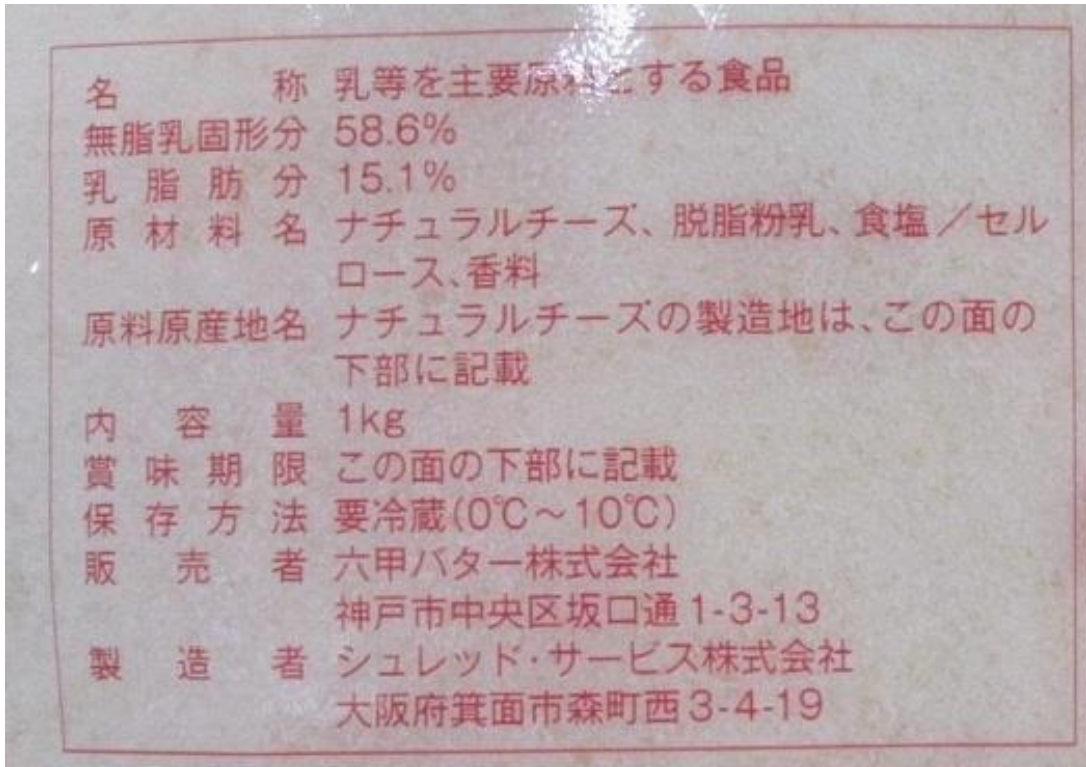 名称 乳等を主要原料とする食品
無脂乳固形分 58.6%
乳脂肪分 15.1%
原材料名 ナチュラルチーズ、脱脂粉乳、食塩／セル
ロース、香料
原料原産地名 ナチュラルチーズの製造地は、この面の
下部に記載
内容量 1kg
賞味期限 この面の下部に記載
保存方法 要冷蔵(0℃～10℃)
販売者 六甲バター株式会社
神戸市中央区坂口通1-3-13
製造者 シュレッド・サービス株式会社
大阪府箕面市森町西3-4-19